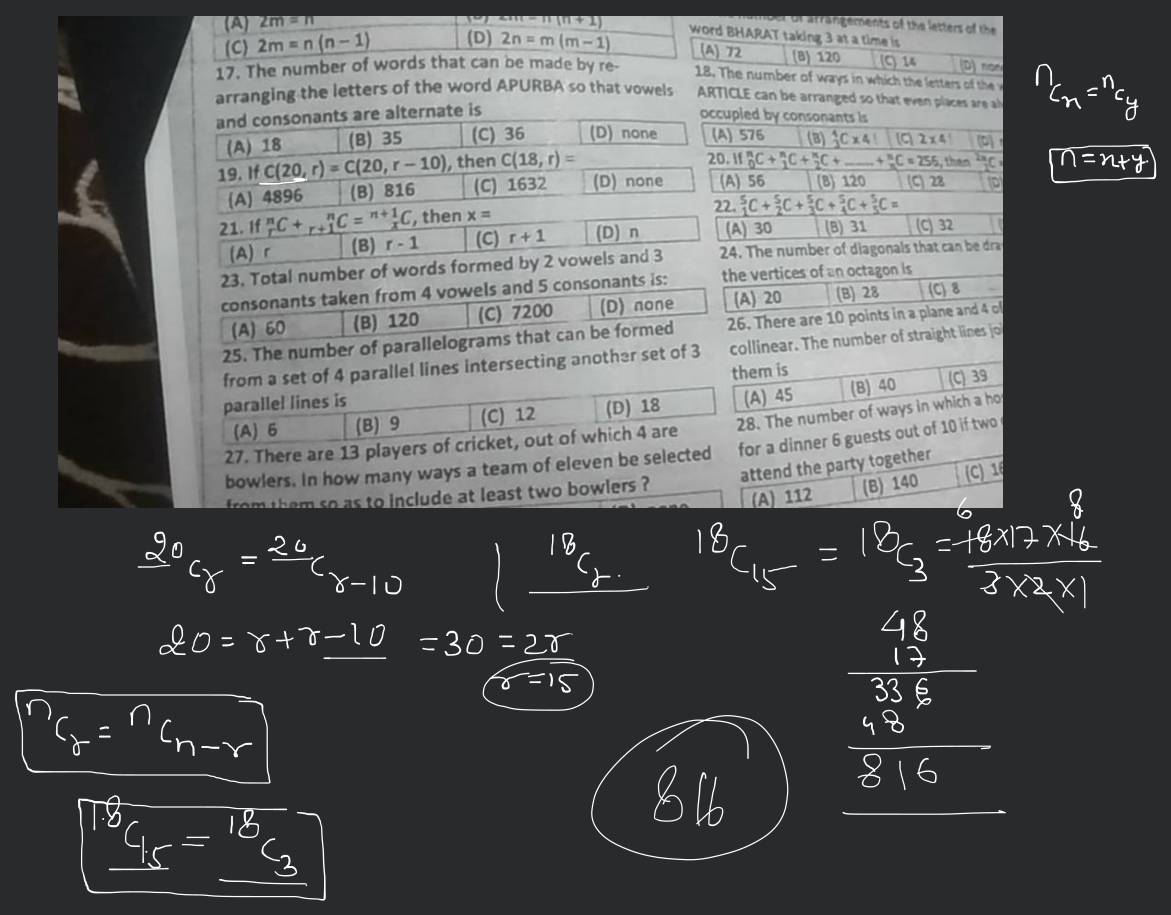 (A) 2m = n
(C) 2m = n (n – 1) (D) 2n = m (m – 1)
17. The number of words that can be made by re-
arranging the letters of the word APURBA so that vowels
and consonants are alternate is
(A) 18 (B) 35 (C) 36 (D) none
19. If C(20, r) = C(20, r – 10), then C(18, r) =
(A) 4896 (B) 816 (C) 1632 (D) none
21. If ⁿᵣC + ⁿᵣ₊₁C = ⁿ⁺¹ₓC, then x =
(A) r (B) r - 1 (C) r + 1 (D) n
23. Total number of words formed by 2 vowels and 3
consonants taken from 4 vowels and 5 consonants is:
(A) 60 (B) 120 (C) 7200 (D) none
25. The number of parallelograms that can be formed
from a set of 4 parallel lines intersecting another set of 3
parallel lines is
(A) 6 (B) 9 (C) 12 (D) 18
27. There are 13 players of cricket, out of which 4 are
bowlers. In how many ways a team of eleven be selected
from them so as to include at least two bowlers ?
arrangements of the letters of the
word BHARAT taking 3 at a time is
(A) 72 (B) 120 (C) 14 (D)
18. The number of ways in which the letters of the
ARTICLE can be arranged so that even places are
occupied by consonants is
(A) 576 (B) ⁴₃C x 4! (C) 2 x 4! (D)
20. If ⁿ₀C + ⁿ₁C + ⁿ₂C + ____ + ⁿₙC = 256, then
(A) 56 (B) 120 (C) 28
22. ⁵₁C + ⁵₂C + ⁵₃C + ⁵₄C + ⁵₅C =
(A) 30 (B) 31 (C) 32
24. The number of diagonals that can be
the vertices of an octagon is
(A) 20 (B) 28 (C) 8
26. There are 10 points in a plane and 4 of
collinear. The number of straight lines
them is
(A) 45 (B) 40 (C) 39
28. The number of ways in which a
for a dinner 6 guests out of 10 if two
attend the party together
(A) 112 (B) 140 (C)
ⁿCₓ = ⁿCy
n = x+y
²⁰Cᵣ = ²⁰Cᵣ₋₁₀
¹⁸Cᵣ.
¹⁸C₁₅ = ¹⁸C₃ = 18×17×16 / 3×2×1
6 8
20 = r+r-10 = 30 = 2r
r=15
48
17
336
48
816
ⁿCᵣ = ⁿCₙ₋ᵣ
816
¹⁸C₁₅ = ¹⁸C₃